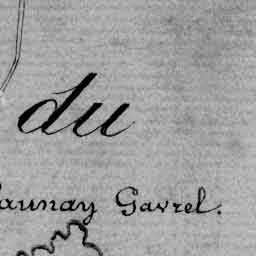 du
aunay Gavrel.